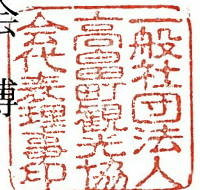 一般社団法人
高畠町観光協
会代表理事印